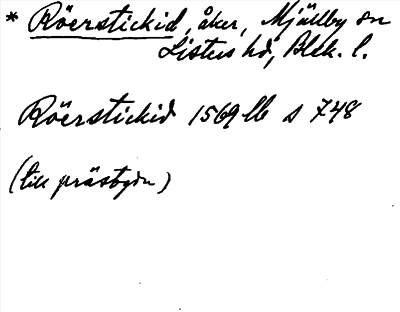 * Röerstickid, åker, Mjällby sn
Listers hd, Blek. l.
Röerstickid 1569 lb s 748
(till prästbyn)